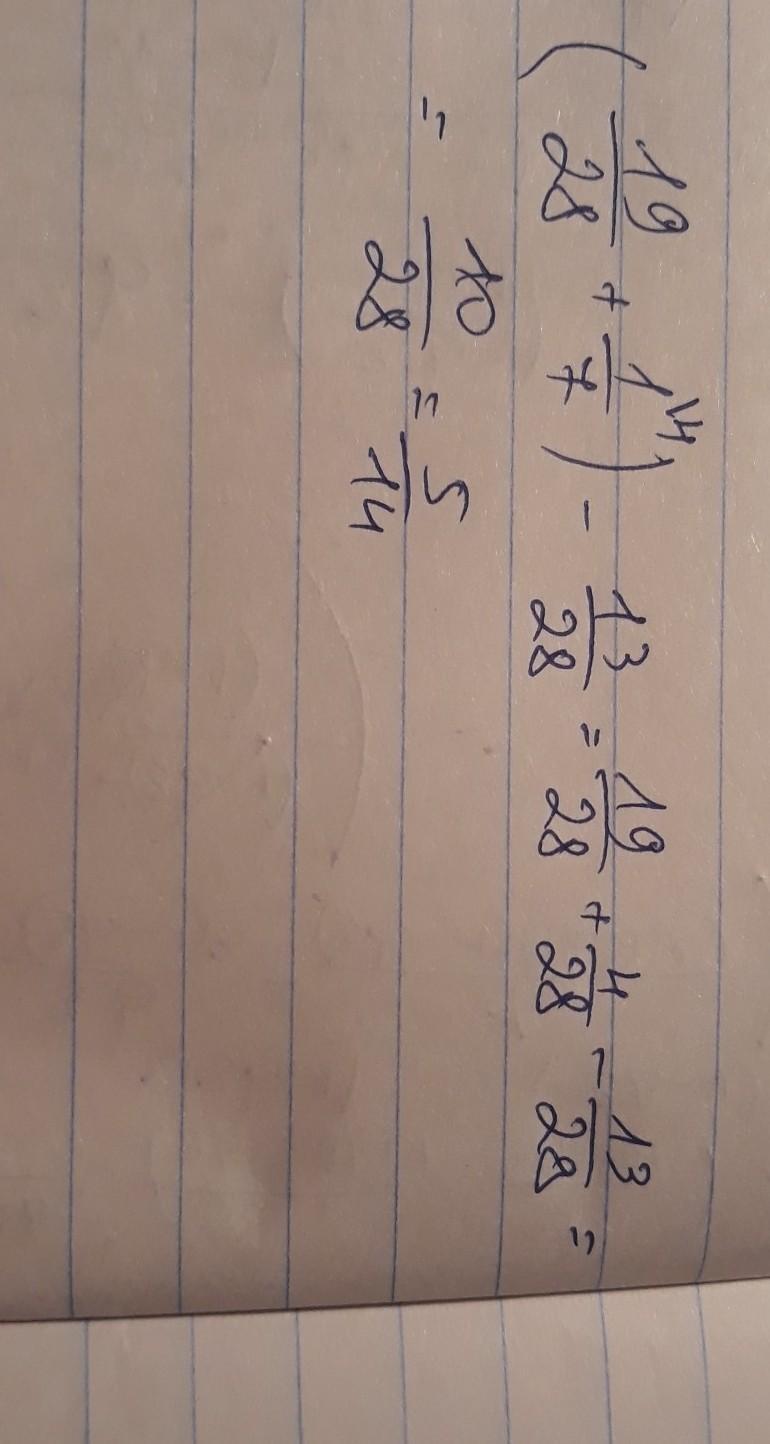 (19/28 + 1\4/7) - 13/28 = 19/28 + 4/28 - 13/28 =
= 10/28 = 5/14